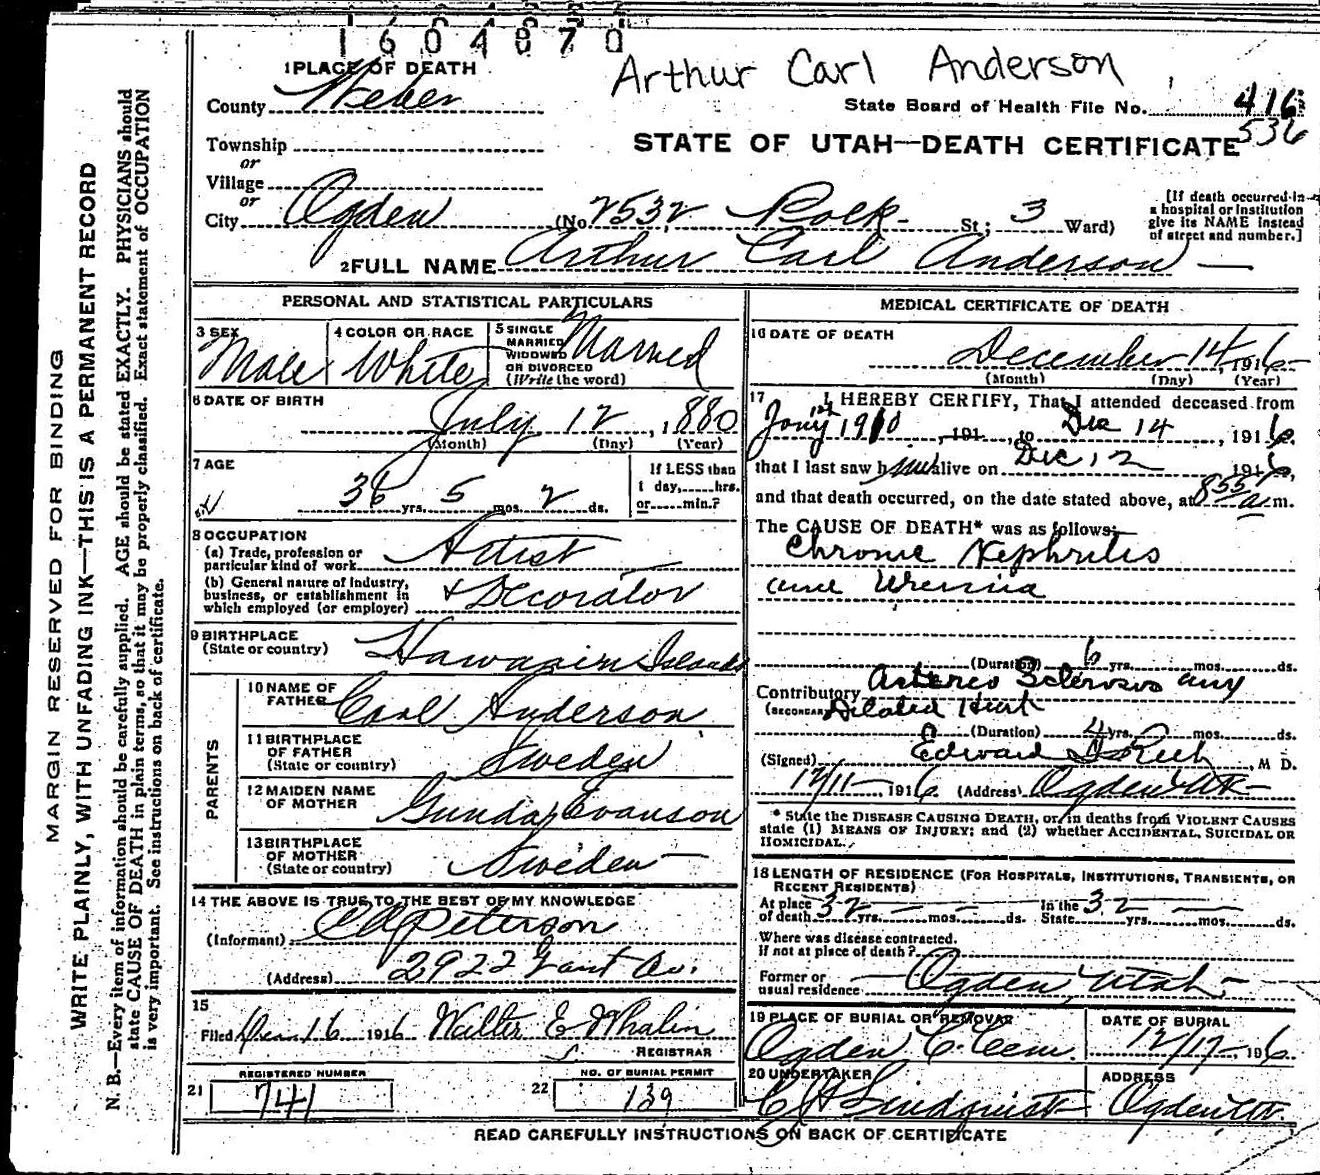 1604070
Arthur Carl Anderson
1 PLACE OF DEATH
County Weber
State Board of Health File No. 416
536
Township
or
Village
or
STATE OF UTAH—DEATH CERTIFICATE
City Ogden (No 2532 Polk St; 3 Ward)
[If death occurred in a hospital or institution give its NAME instead of street and number.]
2 FULL NAME Arthur Carl Anderson
PERSONAL AND STATISTICAL PARTICULARS
3 SEX Male
4 COLOR OR RACE White
5 SINGLE MARRIED WIDOWED OR DIVORCED (Write the word) Married
6 DATE OF BIRTH
July 12, 1880
(Month) (Day) (Year)
7 AGE
36 yrs. 5 mos. 2 ds.
If LESS than 1 day, hrs. or min.?
8 OCCUPATION
(a) Trade, profession or particular kind of work Artist
(b) General nature of industry, business, or establishment in which employed (or employer) & Decorator
9 BIRTHPLACE
(State or country) Hawaiin Islands
PARENTS
10 NAME OF FATHER Carl Anderson
11 BIRTHPLACE OF FATHER (State or country) Sweden
12 MAIDEN NAME OF MOTHER Gunda Evanson
13 BIRTHPLACE OF MOTHER (State or country) Sweden
14 THE ABOVE IS TRUE TO THE BEST OF MY KNOWLEDGE
(Informant) C A Peterson
(Address) 2922 Grant Av.
15
Filed Dec 16 1916 Walter E Whalin
REGISTRAR
REGISTERED NUMBER
21 741
NO. OF BURIAL PERMIT
22 139
MEDICAL CERTIFICATE OF DEATH
16 DATE OF DEATH
December 14, 1916
(Month) (Day) (Year)
17 I HEREBY CERTIFY, That I attended deceased from
Jany 12th 1910, 191 to Dec 14, 1916,
that I last saw him alive on Dec 12 1916,
and that death occurred, on the date stated above, at 8 55 a m.
The CAUSE OF DEATH* was as follows:
Chronic Nephritis
and Uremia
(Duration) 6 yrs. mos. ds.
Contributory Arterio Sclerosis and
(SECONDARY) Dilated Heart
(Duration) 4 yrs. mos. ds.
(Signed) Edward I Rich, M D.
12/11 1916 (Address) Ogden Ut
* State the DISEASE CAUSING DEATH, or, in deaths from VIOLENT CAUSES
state (1) MEANS OF INJURY; and (2) whether ACCIDENTAL, SUICIDAL OR
HOMICIDAL.
18 LENGTH OF RESIDENCE (FOR HOSPITALS, INSTITUTIONS, TRANSIENTS, OR
RECENT RESIDENTS)
At place of death 32 yrs. mos. ds. In the State 32 yrs. mos. ds.
Where was disease contracted.
If not at place of death?
Former or usual residence Ogden Utah
19 PLACE OF BURIAL OR REMOVAL Ogden C. Cem.
DATE OF BURIAL 12/17, 1916
20 UNDERTAKER C J A Lindquist
ADDRESS Ogden Ut.
READ CAREFULLY INSTRUCTIONS ON BACK OF CERTIFICATE
MARGIN RESERVED FOR BINDING
WRITE PLAINLY, WITH UNFADING INK—THIS IS A PERMANENT RECORD
N. B.—Every item of information should be carefully supplied. AGE should be stated EXACTLY. PHYSICIANS should
state CAUSE OF DEATH in plain terms, so that it may be properly classified. Exact statement of OCCUPATION
is very important. See instructions on back of certificate.